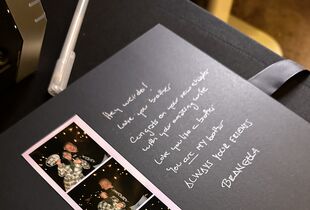 Hey weirdo!
Love you brother
Congrats on your new chapter
with your amazing wife
Love you like a brother
You are MY brother
ALWAYS YOUR FRIENDS
BRANGELA